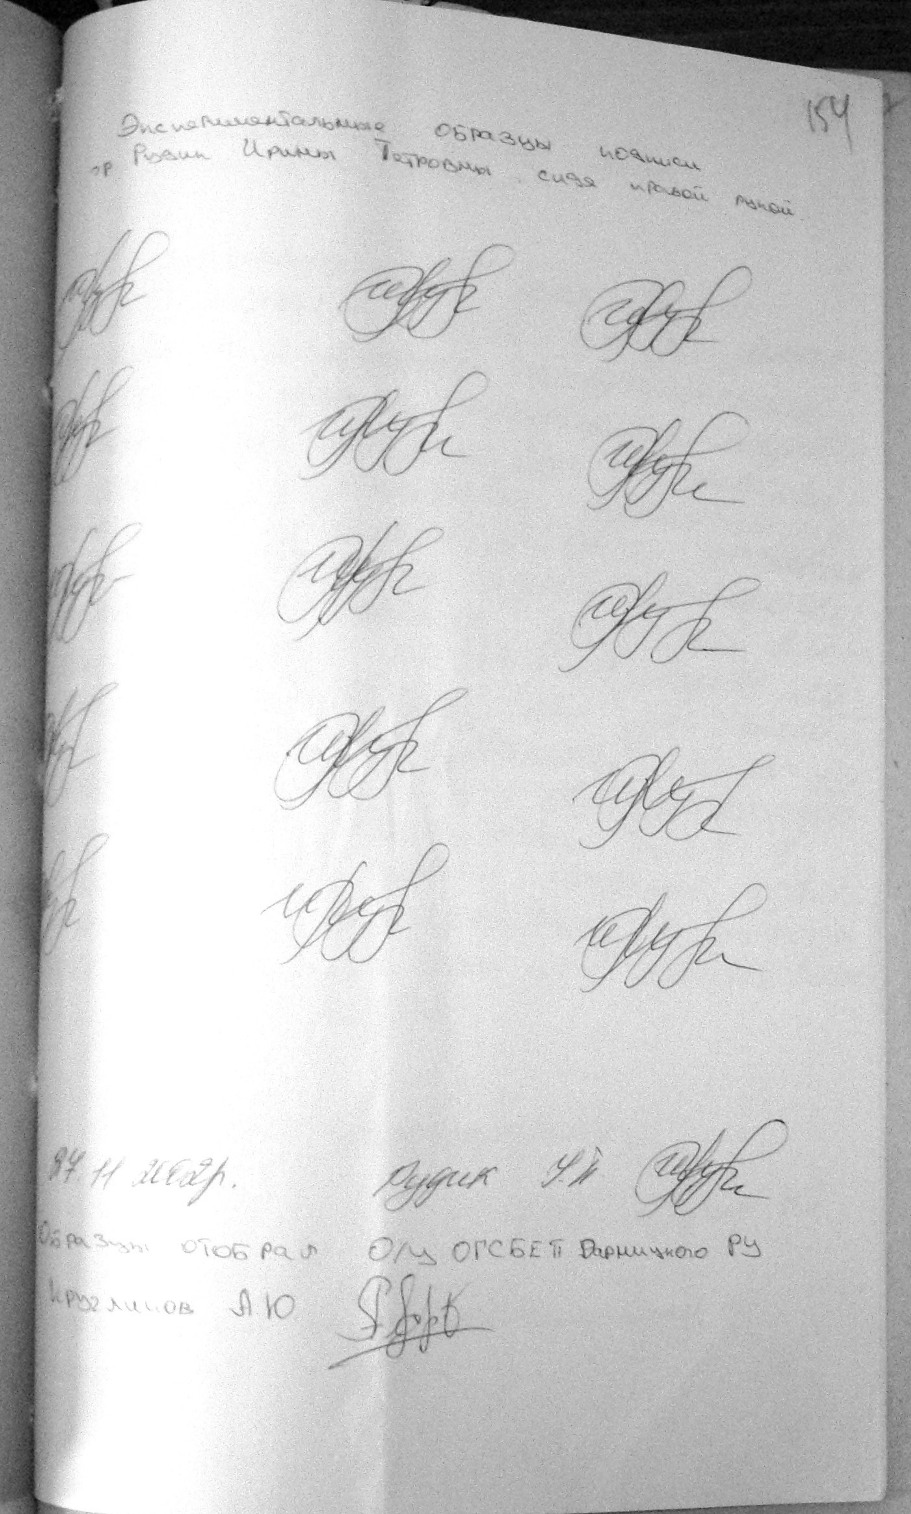 154
Экспериментальные образцы подписи
гр Рудик Ирины Петровны сидя правой рукой
27.11.2002г. Рудик И.П
Образцы отобрал О/у ОГСБЕП Дарницкого РУ
Кругликов А Ю